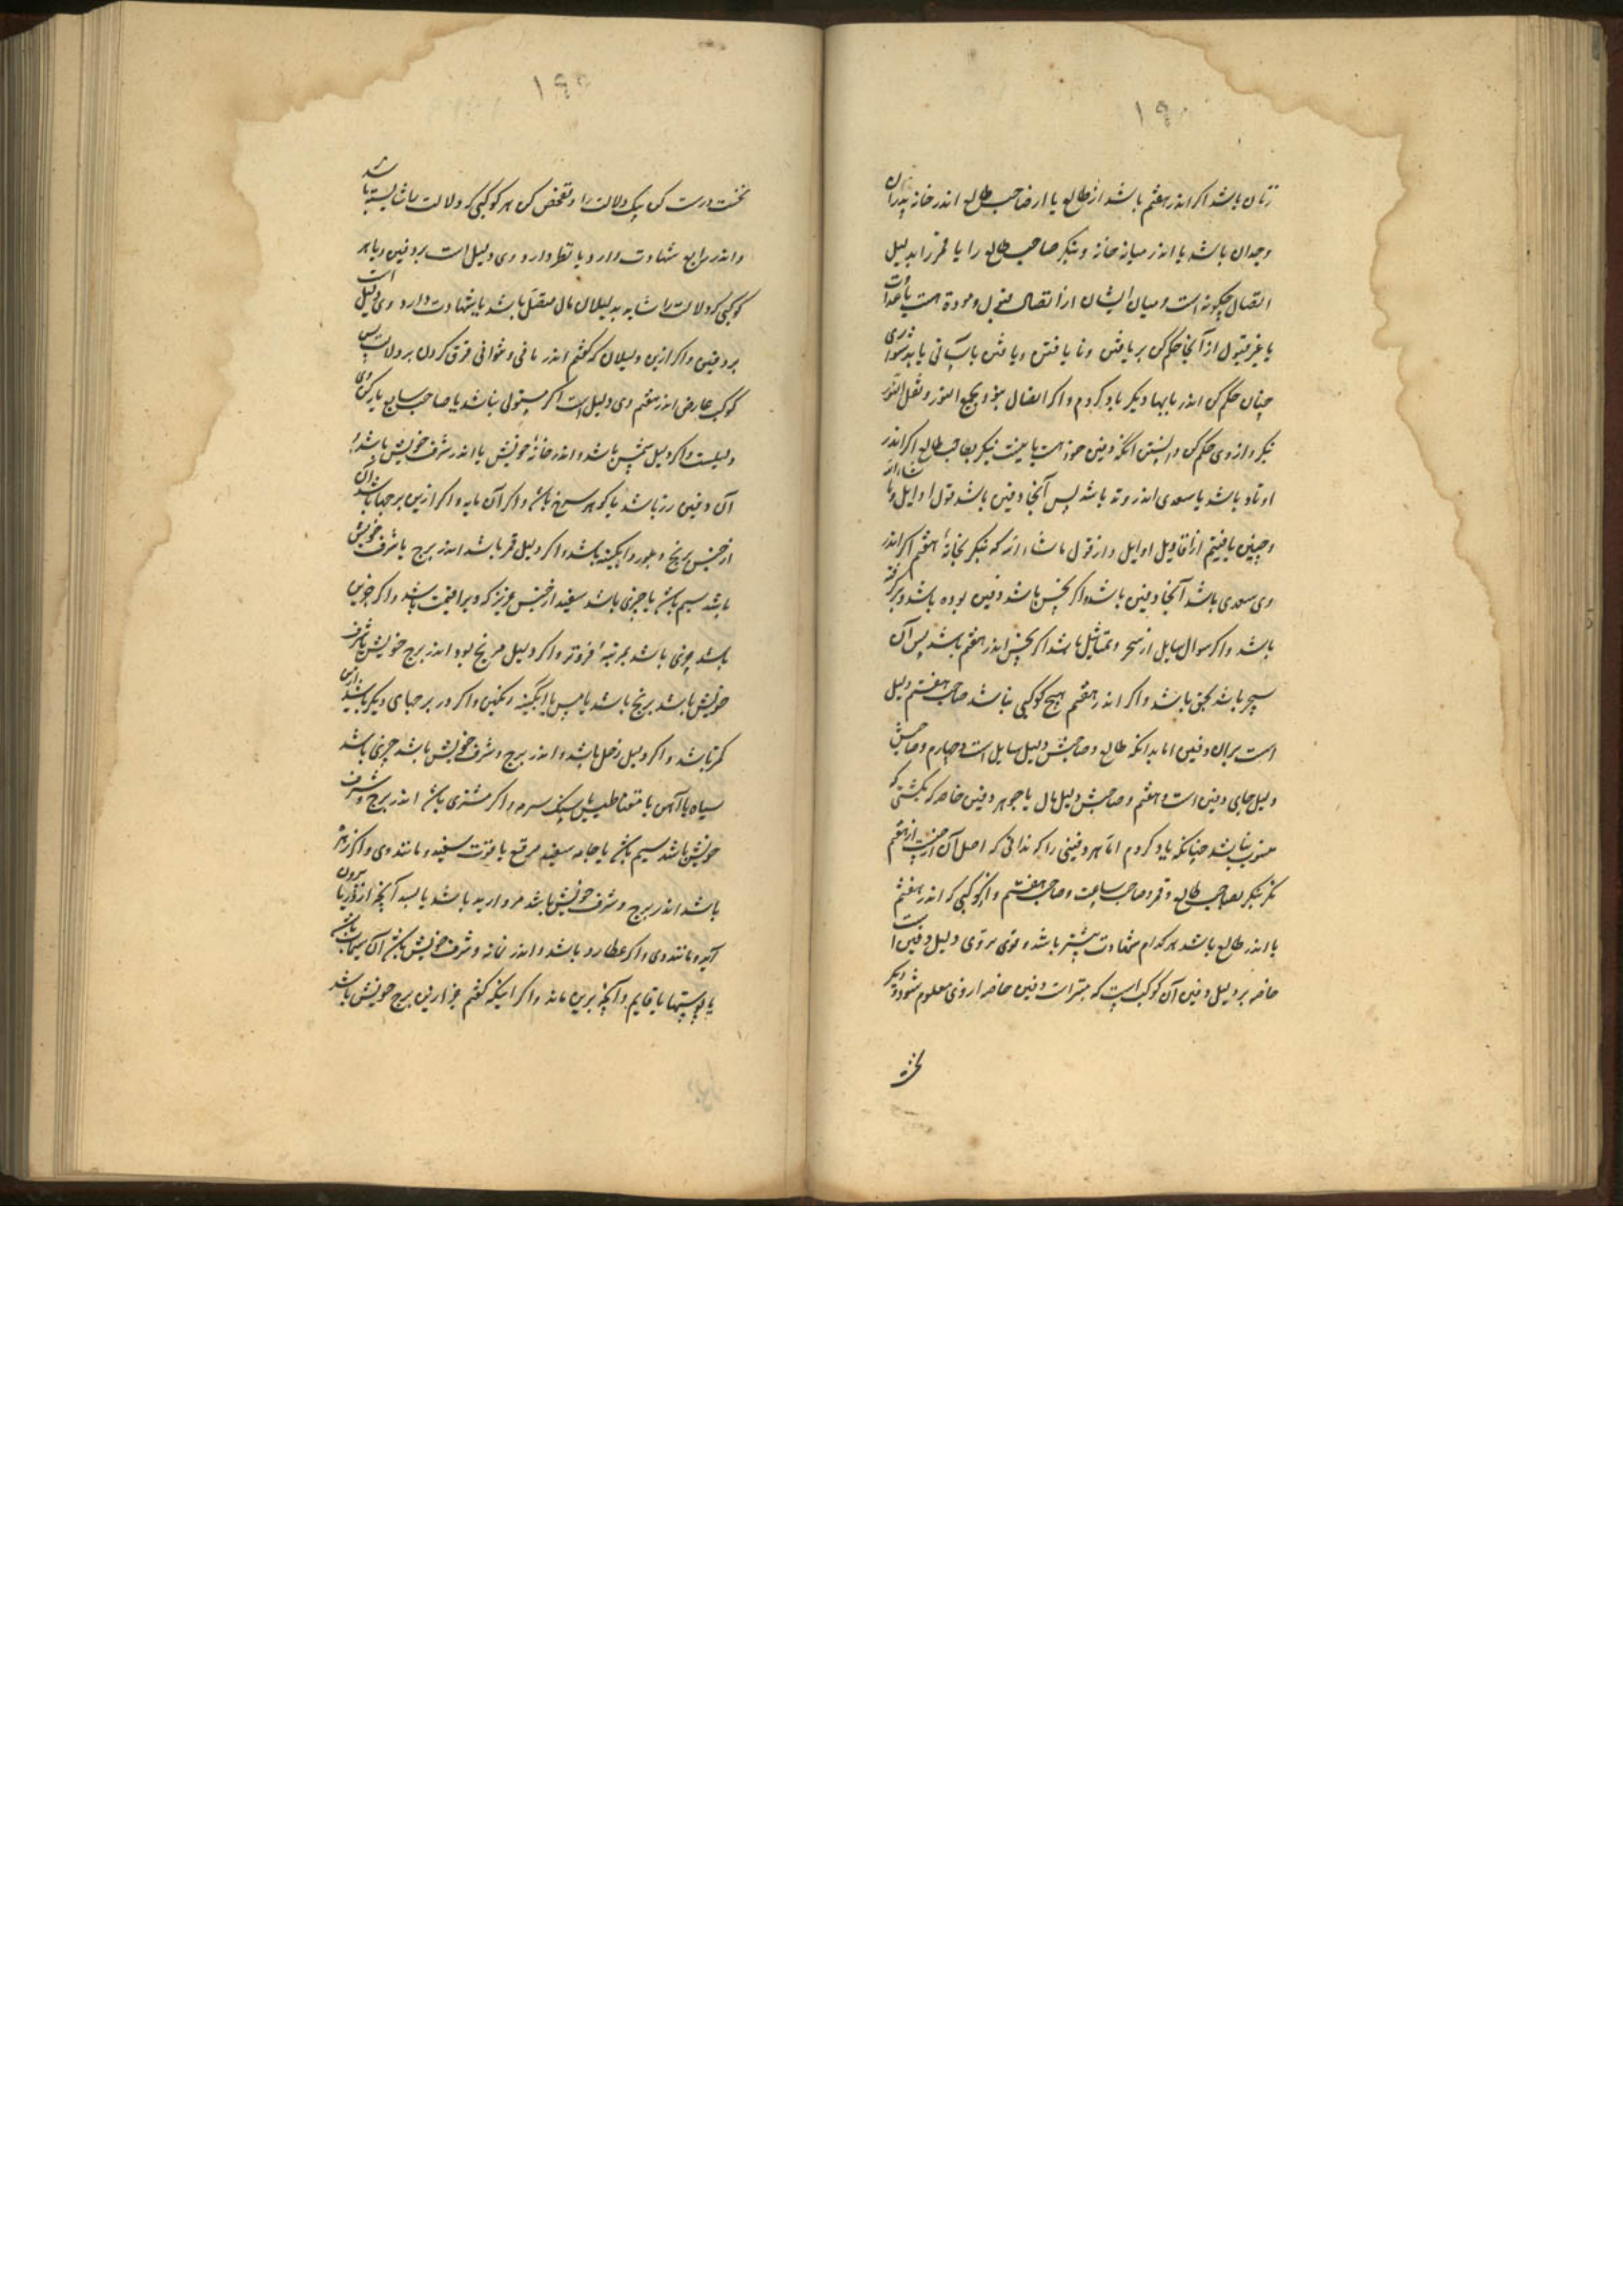 ۱۹۰
زنان باشد اکر اندر هفتم باشد از طالع یا از صاحب طالع اندر خانه پدران
وجدان باشد یا اندر میانه خانه وبنکر صاحب طالع را یا قمر را بدلیل
اتصال چکونه است ومیان ایشان از اتصال قبول ومودة هست یا عداوت
یا غیر مقبول از آنجا حکم کن بر یافتن ونا یافتن ویافتن بآسانی یا بدشواری
چنان حکم کن اندر بابها دیکر یاد کردم واکر اتصال نبود بجمع النور ونقل النور
بنکر واز وی حکم کن دانستن آنکه دفین خود هست یا نیست بنکر بصاحب طالع اکر اندر
اوتاد باشد یا سعدی اندر وتد باشد پس آنجا دفین باشد قول اوایل وما شاء الله
وچنین یافتیم از اقاویل اوایل واز قول ما شاء الله که بنکر بخانهٔ هفتم اکر اندر
وی سعدی باشد آنجا دفین باشد واکر نحس باشد دفین بوده باشد وبرکرفته
باشد واکر سوال سایل از سحر وتماثیل باشد اکر نحس اندر هفتم باشد پس آن
سحر باشد بحق باشد واکر اندر هفتم هیچ کوکبی نباشد صاحب هفتم دلیل
است بران دفین اما بدانکه طالع وصاحبش دلیل سایل است وچهارم وصاحبش
دلیل جای دفین است وهفتم وصاحبش دلیل مال یا جوهر دفین خاصه که بکشتی که
منسوب باشد چنانکه یاد کردم اما هر دفینی را که ندانی که اصل آن از چیست از هفتم
نکر بنکر بصاحب طالع وقمر وصاحب ساعت وصاحب هفتم وآن کوکبی که اندر هفتم
یا اندر طالع باشد هر کدام شهادت بیشتر باشد وقوی تر وی دلیل دفین است
خاصه بر دلیل دفین آن کوکب است که دفین خاصه از وی معلوم شود ودیکر
نخست
۱۹۱
نخست درست کن یک دلالت را وتفحص کن هر کوکبی که دلالت را شایسته باشد
واندر رابع شهادت دارد یا نظر دارد وی دلیل است بر دفین ویا هر
کوکبی که دلالت را شاید بدلیلان مال متصل باشد یا شهادت دارد وی دلیل است
بر دفین واکر ازین دلیلان که کفتم اندر مانی وتوانی فرق کردن بر دلالت پس
کوکب عارض اندر هفتم وی دلیل است اکر مستولی نباشد یا صاحب سابع یاد کن وی
دلیلست واکر دلیل شمس باشد واندر خانهٔ خویش یا اندر شرف خویش باشد
آن دفین زر باشد یا کوهر سرخ باشد واکر آن مایه واکر ازین برجها باشد آن
از جنس برنج وبلور وآبکینه باشد واکر دلیل قمر باشد اندر برج یا شرف خویش
باشد سیم باشد یا چیزی باشد سفید از جنس عزیز که ویرا قیمت باشد واکر جز این
باشد چیزی باشد بمرتبهٔ فروتر واکر دلیل مریخ بود اندر برج خویش یا شرف
خویش باشد برنج باشد یا مس یا آبکینه رنکین واکر در برجهای دیکر باشد ازین
کمتر باشد واکر دلیل زحل باشد واندر برج وشرف خویش باشد چیزی باشد
سیاه یا آهن یا مقناطیس یا سنک سرمه واکر مشتری باشد اندر برج وشرف
خویش باشد سیم باشد یا جامه سفید مرقع یا قوت سفید ومانند وی واکر زهره
باشد اندر برج وشرف خویش باشد مروارید باشد یا بسد آنچه از دریا بیرون
آید ومانند وی واکر عطارد باشد واندر خانه وشرف خویش باشد آن سیماب باشد
یا پوستها یا قایم وآنچه برین ماند واکر اینکه کفتم جز از این برج خویش باشد